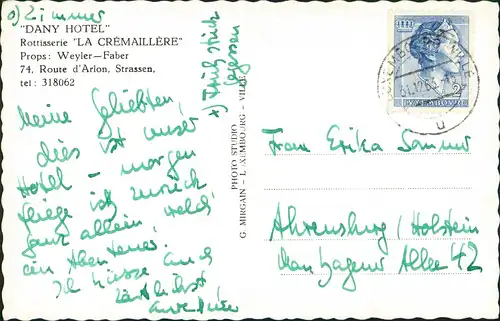 o) Zimmer
"DANY HOTEL"
Rottisserie "LA CRÉMAILLÈRE"
Props: Weyler-Faber
74, Route d'Arlon, Strassen,
tel: 318062
x) Frühstück
gegessen
Meine Geliebten,
dies ist unser
Hotel - morgen
fliege ich zurück
ganz allein, welch
ein Abenteuer.
Ich küsse euch
zärtlichst
PHOTO STUDIO
G. MERGAIN - LUXEMBOURG - VILLE
LUXEMBOURG
2
Frau Erika Sommer
Ahrensburg / Holstein
Manhagener Allee 42